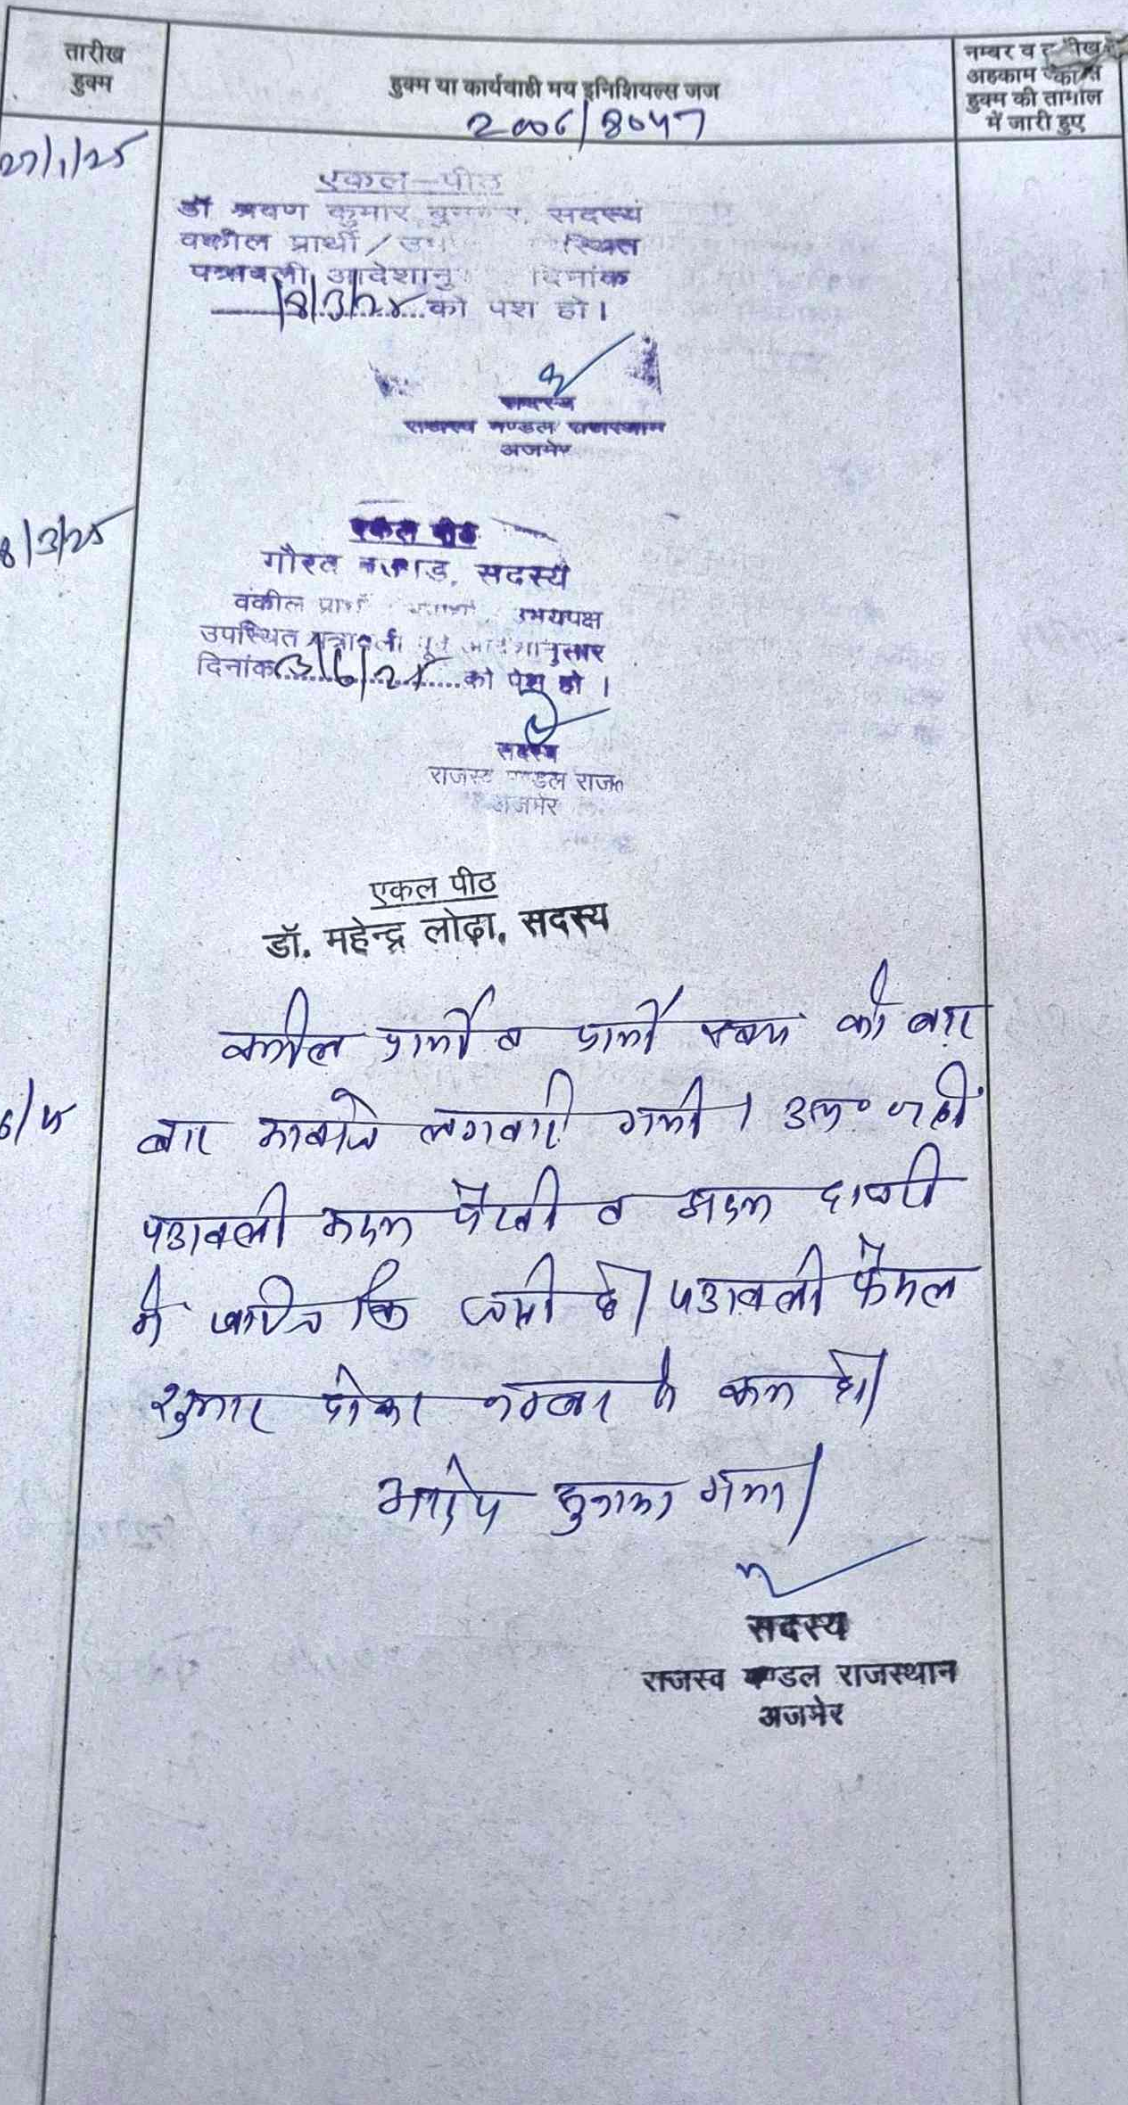 तारीख
हुक्म
हुक्म या कार्यवाही मय इनिशियल्स जज
नम्बर व
अहकाम
हुक्म की तामील
में जारी हुए
2006/8047
27/1/25
एकल-पीठ
डॉ श्रवण कुमार सदस्य
वकील प्रार्थी /
पत्रावली दिनांक
18/3/25 को पेश हो।
सदस्य
राजस्व मण्डल राजस्थान
अजमेर
8/3/25
एकल पीठ
गौरव सदस्य
वकील उभयपक्ष
उपस्थित
दिनांक 3/6/25 को पेश हो।
सदस्य
राजस्व मण्डल राज०
अजमेर
एकल पीठ
डॉ. महेन्द्र लोढ़ा, सदस्य
वकील प्रार्थी व प्रार्थी स्वयं को बार
बार आवाजे लगवाई गयी। उप० नहीं
6/25
पत्रावली अदम पैरवी व अदम हाजरी
में खारिज कि जाती है। पत्रावली फैसल
शुमार होकर नम्बर से कम हो।
आदेश सुनाया गया।
सदस्य
राजस्व मण्डल राजस्थान
अजमेर